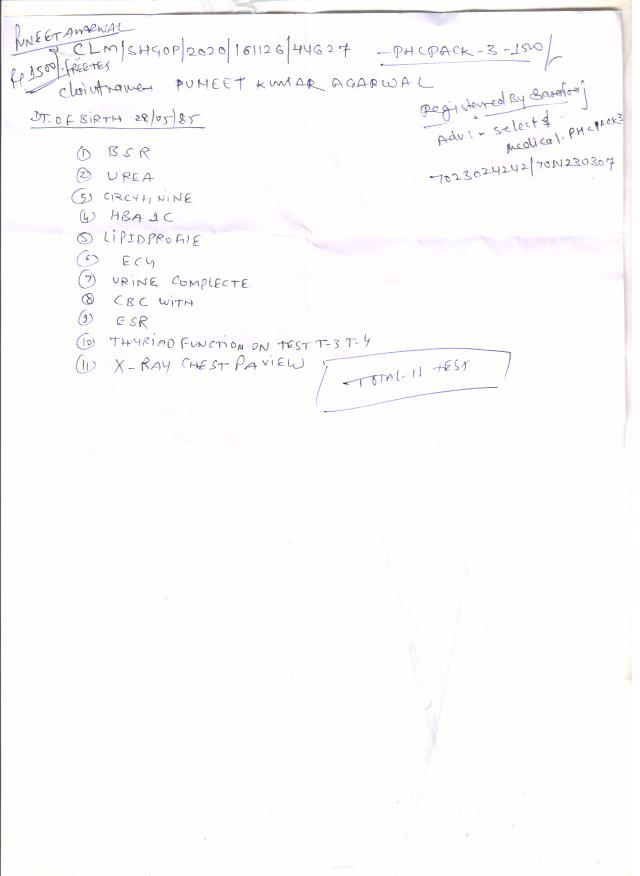 PUNEET AGARWAL
CLM/SHGOP/2020/161126/44627 -PHCPACK-3-1500/
₹ 1500/. FREETES
PUNEET KUMAR AGARWAL
DT. OF BIRTH 28/05/85
Registerred By
Adv:- select &
medical, PHCPACK3
7023024242/7014230307
① BSR
② UREA
③ CRCHTNINE
④ HBA1C
⑤ LIPIDPROFILE
⑥ ECG
⑦ URINE COMPLECTE
⑧ CBC WITH
⑨ ESR
⑩ THYRIAD FUNCTION ON TEST T-3 T-4
⑪ X-RAY CHEST PA VIEW
TOTAL-11 TEST